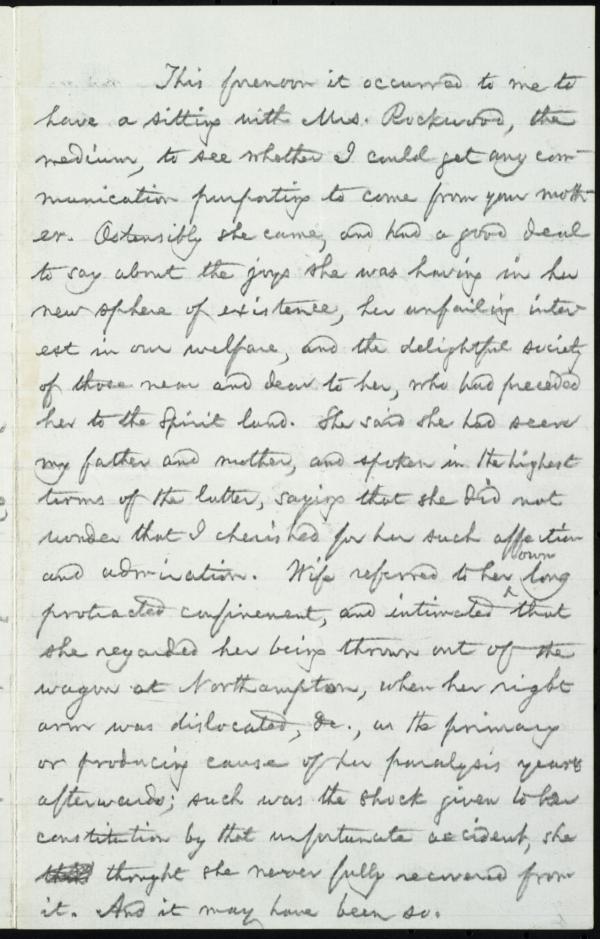 This forenoon it occurred to me to
have a sitting with Mrs. Rockwood, the
medium, to see whether I could get any com-
munication purporting to come from your moth-
er. Ostensibly she came, and had a good deal
to say about the joys she was having in her
new sphere of existence, her unfailing inter-
est in our welfare, and the delightful society
of those near and dear to her, who had preceded
her to the Spirit land. She said she had seen
my father and mother, and spoken in the highest
terms of the latter, saying that she did not
wonder that I cherished for her such affection
and admiration. Wife referred to her own long
protracted confinement, and intimated that
she regarded her being thrown out of the
wagon at Northampton, when her right
arm was dislocated, &c., as the primary
or producing cause of her paralysis years
afterwards; such was the shock given to her
constitution by that unfortunate accident, she
thought she never fully recovered from
it. And it may have been so.